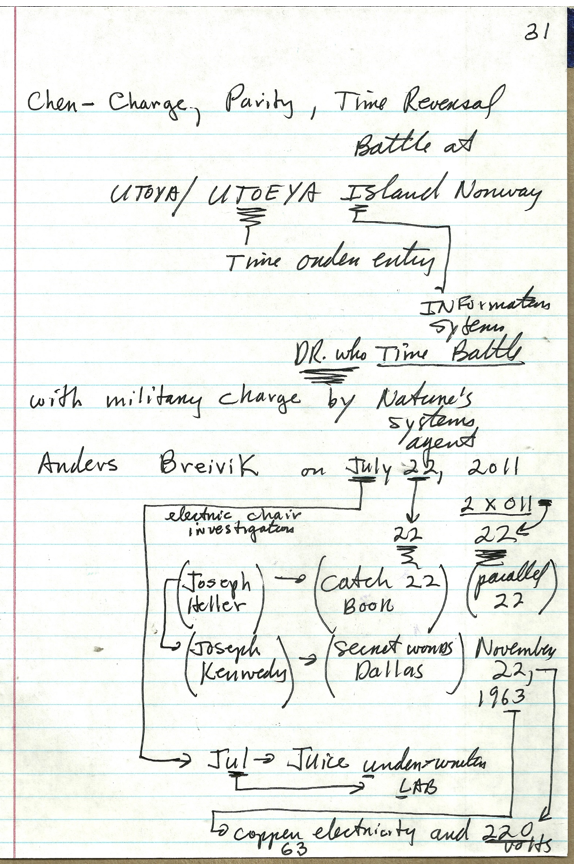 31
Chen- Charge, Parity, Time Reversal
Battle at
UTOYA/ UTOEYA Island Norway
Time order entry
INFormation
systems
DR. who Time Battle
with military charge by Nature's
systems
agent
Anders Breivik on July 22, 2011
electric chair
investigation
2 x 011
22 22
(Joseph Heller) → (Catch 22 Book) (parallel 22)
(Joseph Kennedy) → (secret words Dallas) November
22,
1963
Jul → Juice under-written
LAB
copper electricity and 220
63 volts